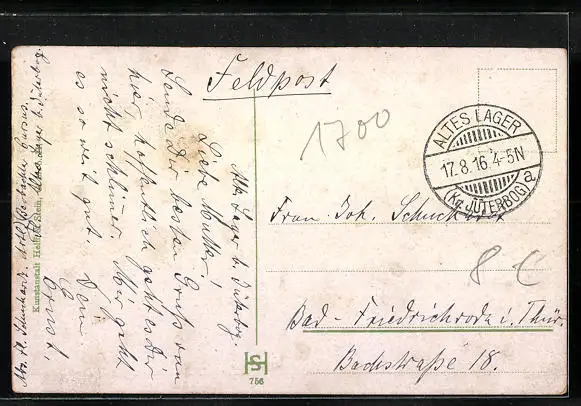 Feldpost
1700
ALTES LAGER
17.8.16 4-5N
(Kr. JÜTERBOG) a
Frau Joh. Schuchardt
8 €
Bad-Friedrichroda i. Thür.
Bachstraße 18.
Alt. Lager b. Jüterbog.
Liebe Mutter!
Sende Dir besten Gruß von
hier, hoffentlich geht es Dir
nicht schlimm. Mir geht
es so weit gut. Dein
Ernst.
Abs. Schuchardt, Cursus.
Altes Lager b. Jüterbog.
Kunstanstalt
756